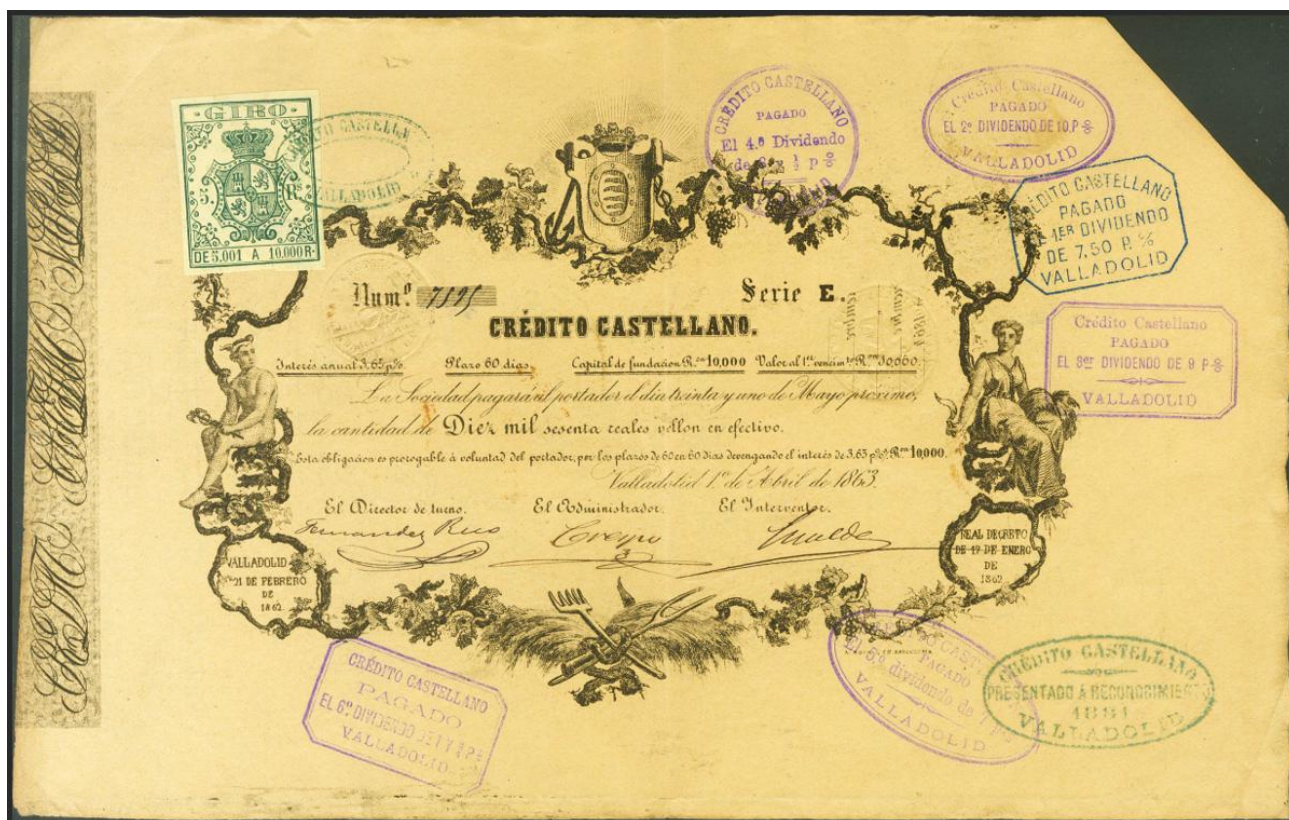 GIRO
5. Rs.
DE 5,001 A 10,000 R.
VALLADOLID
CRÉDITO CASTELLANO
PAGADO
El 4.º Dividendo
Crédito Castellano
PAGADO
EL 2º DIVIDENDO DE 10. P %
VALLADOLID
CRÉDITO CASTELLANO
PAGADO
1ER DIVIDENDO
DE 7.50 P. %
VALLADOLID
Crédito Castellano
PAGADO
EL 3er DIVIDENDO DE 9 P %
VALLADOLID
Numº 7195
Serie E.
CRÉDITO CASTELLANO.
Interés anual 3.65 p% Plazo 60 dias Capital de fundacion R.on 10,000 Valor al 1er vencimto R.on 10,060
La Sociedad pagará al portador el dia treinta y uno de Mayo próximo,
la cantidad de Diez mil sesenta reales vellon en efectivo.
Esta obligacion es prorogable á voluntad del portador, por los plazos de 60 en 60 dias devengando el interés de 3.65 p% R.on 10,000.
Valladolid 1º de Abril de 1863.
El Director de turno. El Administrador. El Interventor.
Fernandez Rico Crespo
VALLADOLID
21 DE FEBRERO
DE
1862.
REAL DECRETO
DE 17 DE ENERO
DE
1862
CRÉDITO CASTELLANO
PAGADO
EL 6º DIVIDENDO DE
VALLADOLID
PAGADO
El 5.º dividendo de
VALLADOLID
CRÉDITO CASTELLANO
PRESENTADO Á RECONOCIMIENTO
1881
VALLADOLID